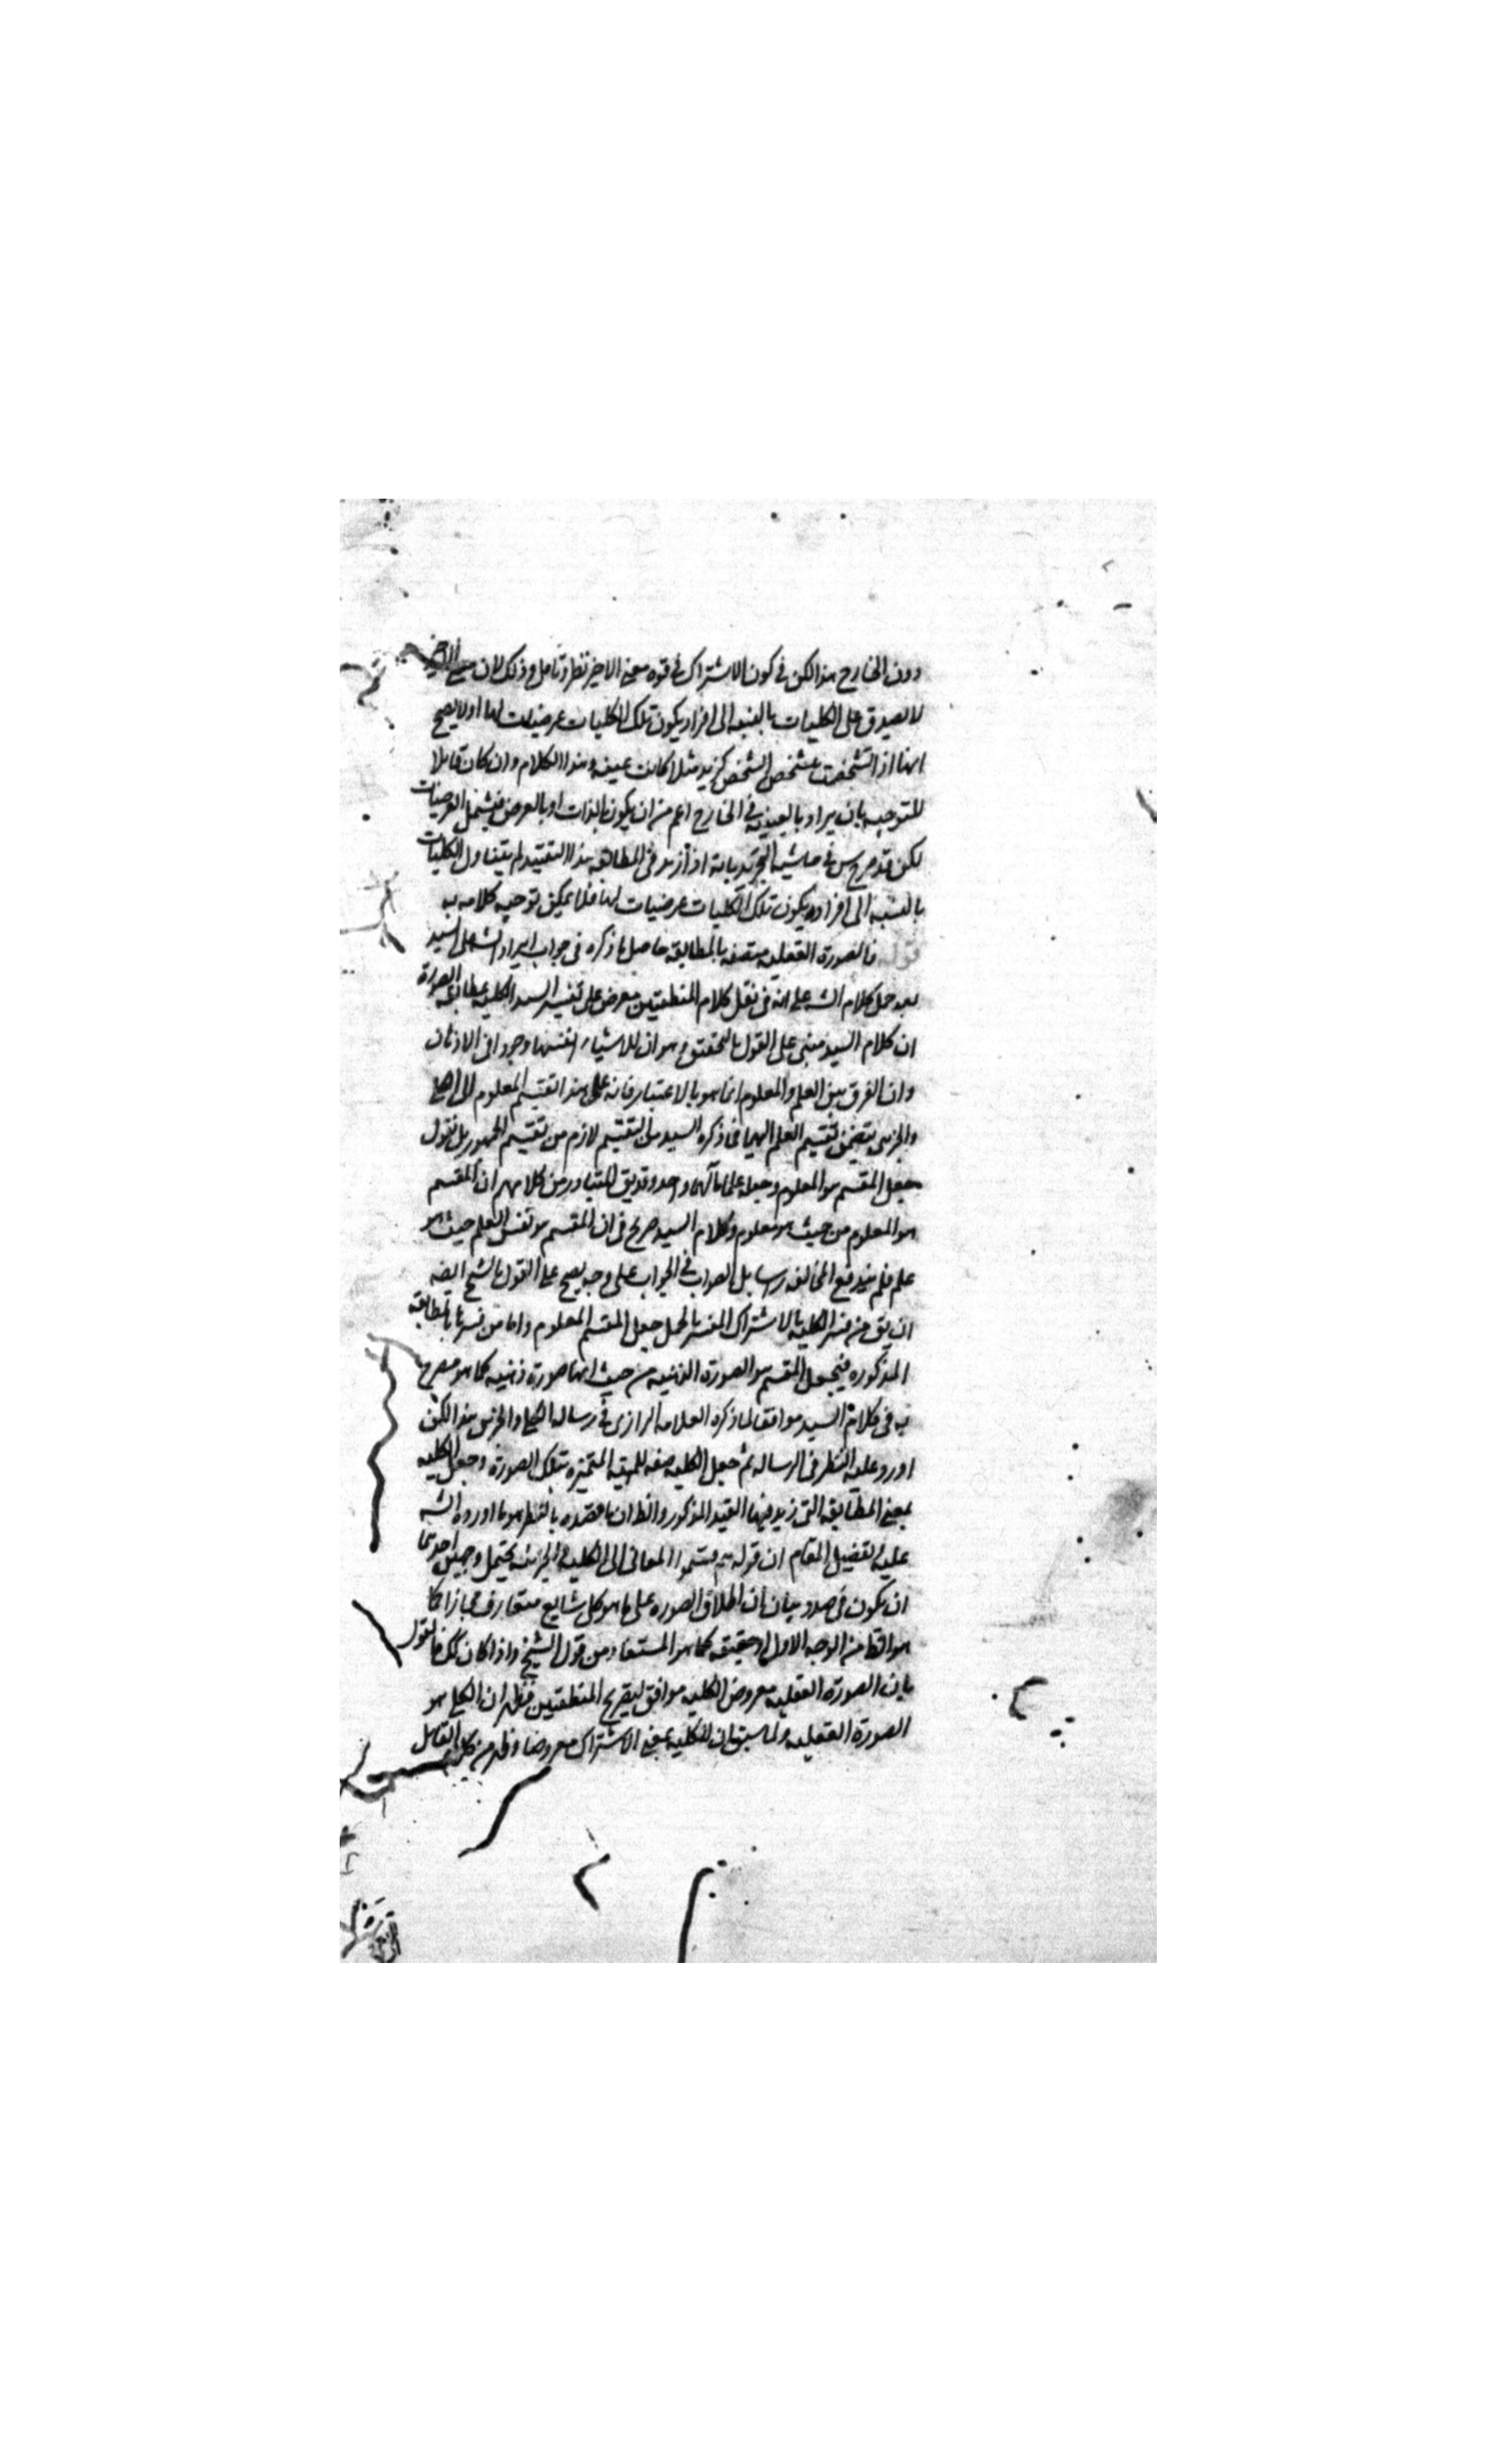 دون الخارج هذا لكن في كون الاشتراك في قوه معنى الاخير نظر وتامل وذلك لان معنى الاخير
لا يصدق على الكليات بالنسبه الى افراد يكون تلك الكليات عرضيات لها اولا يصح
انها اذا تشخصت بتشخص الشخص كزيد مثلا كانت عينه وهذا الكلام وان كان قابلا
للتوجيه بان يراد بالعينيه في الخارج اعم من ان يكون بالذات او بالعرض فيشمل العرضيات
لكن قد صرح س في حاشيه التجريد بانه اذا زيد في المطابقه هذا التقييد لم يتناول الكليات
بالنسبه الى افراد يكون تلك الكليات عرضيات لها فلا يمكن توجيه كلامه به
قوله فالصورة العقليه متصفه بالمطابقه حاصل ما ذكره في جواب ايراد الشه على السيد
بعد حمل كلام الشه على انه في نقل كلام المنطقيين معرض على تفسير السيد الكليه بمطابقه الصورة
ان كلام السيد مبني على القول بالتحقيق وهو ان للاشياء انفسها وجود في الاذهان
وان الفرق بين العلم والمعلوم انما هو بالاعتبار فانه على هذا تقسيم المعلوم الى الكلي
والجزئي يتضمن تقسيم العلم اليهما فما ذكره السيد من التقسيم لازم من تقسيم الجمهور بل نقول
جعل المقسم هو المعلوم وجعله علما مآلهما واحد وقد يق المتبادر من كلامهم ان المقسم
هو المعلوم من حيث هو معلوم وكلام السيد صريح في ان المقسم هو نفس العلم حيث هو
علم فلم يندفع المخالفه راسا بل الصواب في الجواب على وجه يصح على القول بالشبح ايضه
ان يق من فسر الكليه بالاشتراك المفسر بالحمل جعل المقسم المعلوم واما من فسرها بالمطابقه
المذكوره فيجعل المقسم هو الصورة الذهنيه من حيث انها صورة ذهنيه كما هو مصرح
به في كلام السيد موافقا لما ذكره العلامه الرازى في رساله الكلي والجزئي هذا لكن
اورد عليه النظر في الرساله ثم جعل الكليه صفه للمهيه المتميزه بتلك الصورة وجعل الكليه
بمعنى المطابقه التى زيد فيها القيد المذكور والظ ان ما قصده بالنظر هو ما اورده الشه
عليه تفصيل المقام ان قوله قسموا المعانى الى الكليه والجزئيه يحتمل وجهين احدهما
ان يكون في صدد بيان ان اطلاق الصوره على ما هو كلى شايع متعارف مجازا كما
هو الظ من الوجه الاول او حقيقه كما هو المستفاد من قول الشيخ واذا كان كك فالقول
بان الصورة العقليه معروض الكليه موافق لتصريح المنطقيين فظهر ان الكلى هو
الصورة العقليه ولما سبق ان للكليه بمعنى الاشتراك معروضا وظهر من كلام القائل